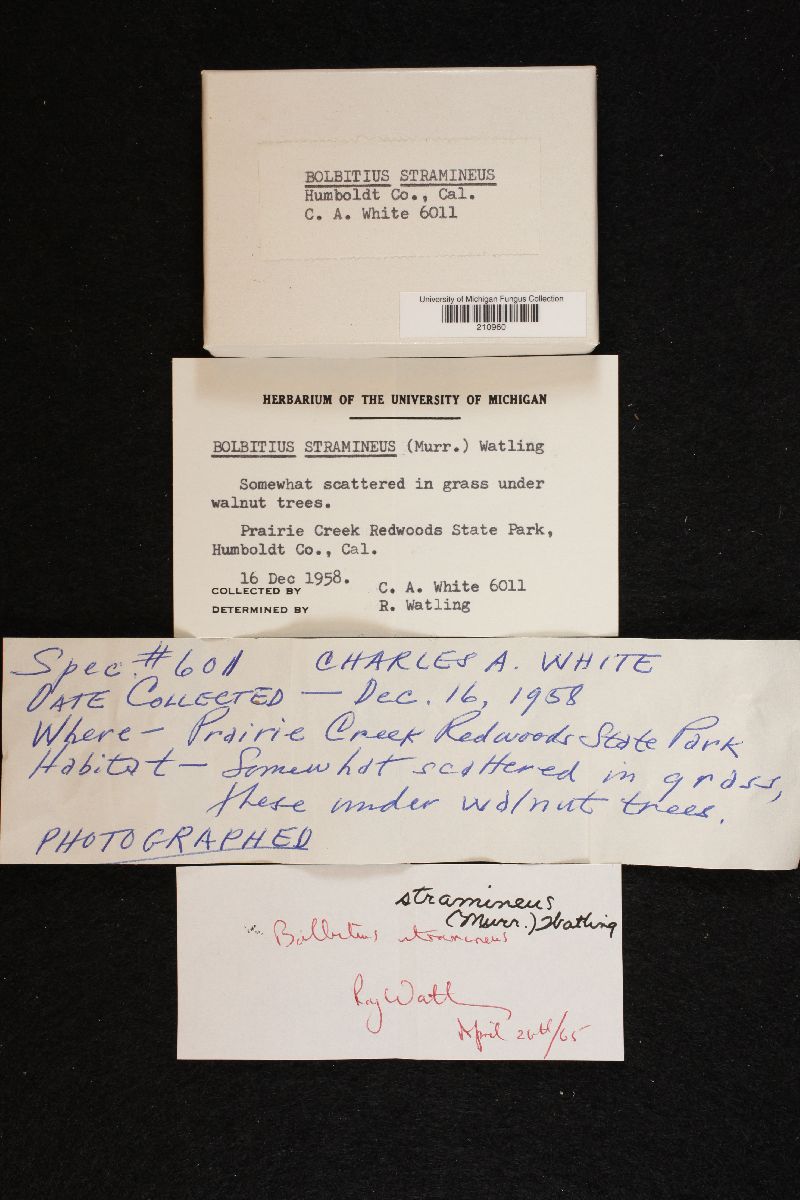 BOLBITIUS STRAMINEUS
Humboldt Co., Cal.
C. A. White 6011
University of Michigan Fungus Collection
210960
HERBARIUM OF THE UNIVERSITY OF MICHIGAN
BOLBITIUS STRAMINEUS (Murr.) Watling
Somewhat scattered in grass under
walnut trees.
Prairie Creek Redwoods State Park,
Humboldt Co., Cal.
16 Dec 1958.
COLLECTED BY C. A. White 6011
DETERMINED BY R. Watling
Spec. #6011 CHARLES A. WHITE
DATE COLLECTED — Dec. 16, 1958
Where — Prairie Creek Redwoods State Park
Habitat — Somewhat scattered in grass,
these under walnut trees.
PHOTOGRAPHED
stramineus
(Murr.) Watling
Bolbitius stramineus
Roy Watl
April 26th/65